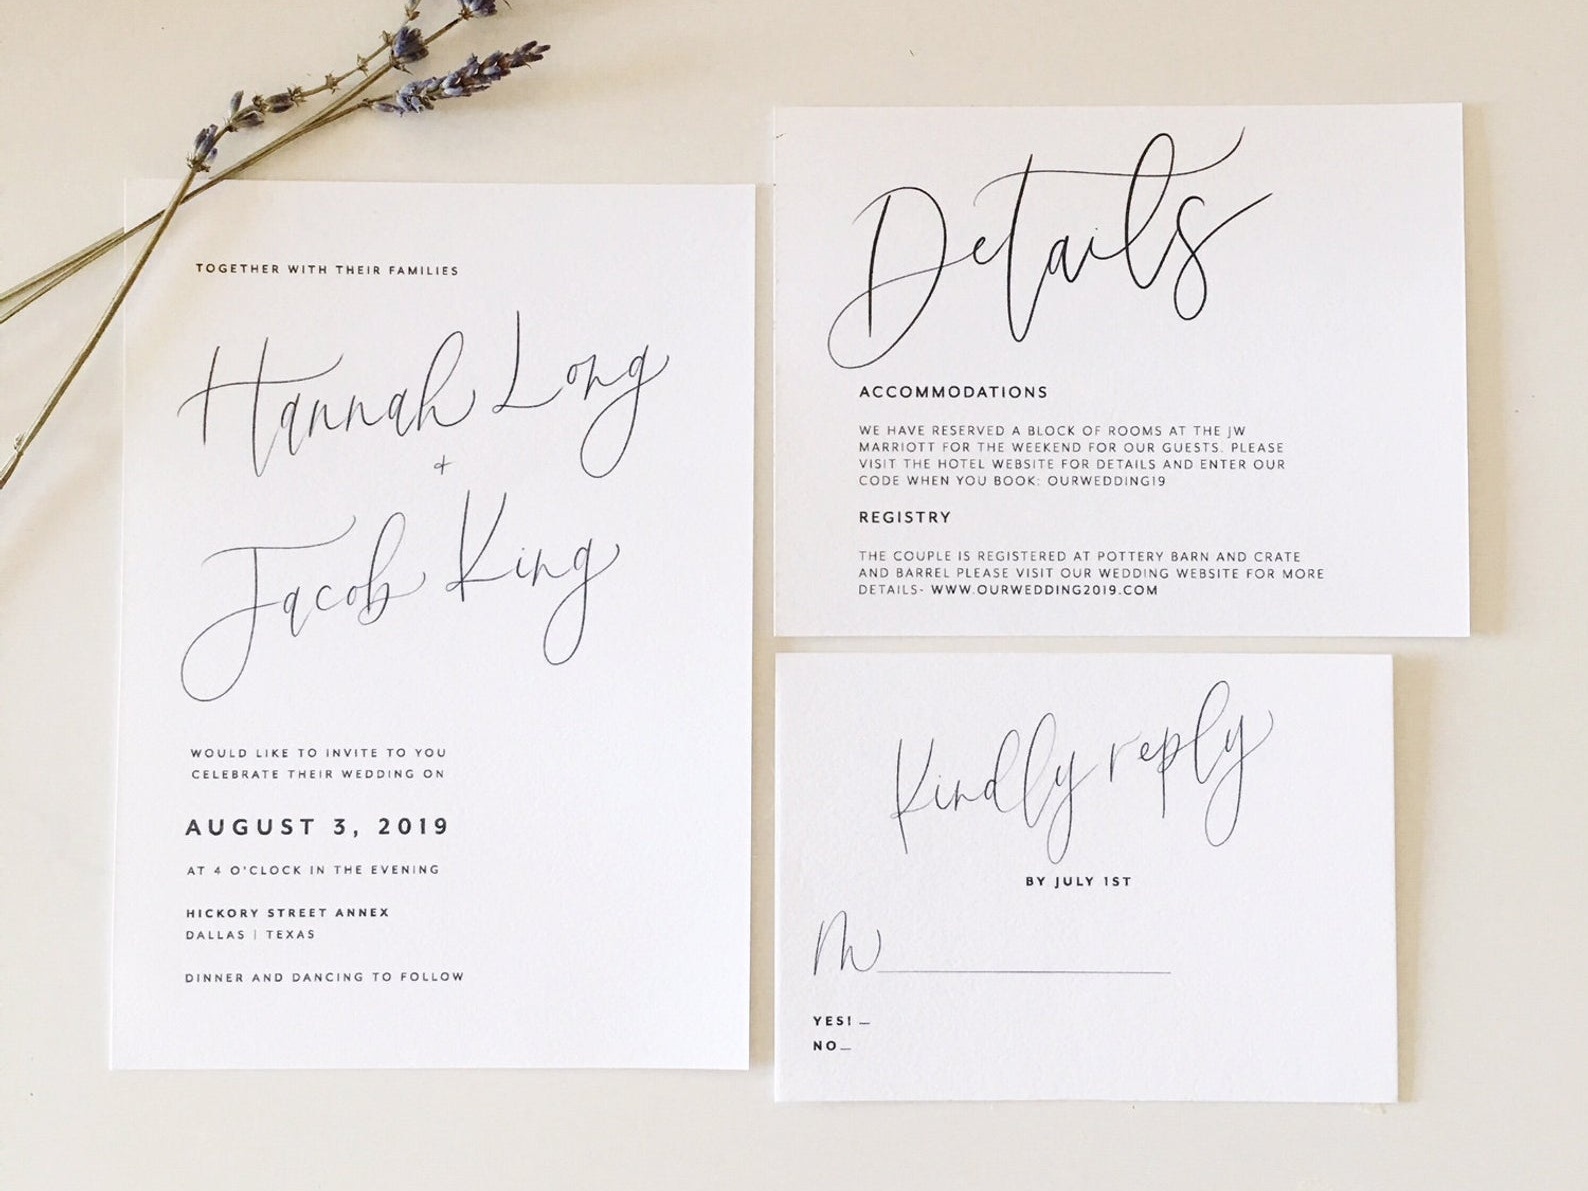 TOGETHER WITH THEIR FAMILIES
Hannah Long
+
Jacob King
WOULD LIKE TO INVITE TO YOU
CELEBRATE THEIR WEDDING ON
AUGUST 3, 2019
AT 4 O'CLOCK IN THE EVENING
HICKORY STREET ANNEX
DALLAS | TEXAS
DINNER AND DANCING TO FOLLOW
Details
ACCOMMODATIONS
WE HAVE RESERVED A BLOCK OF ROOMS AT THE JW
MARRIOTT FOR THE WEEKEND FOR OUR GUESTS. PLEASE
VISIT THE HOTEL WEBSITE FOR DETAILS AND ENTER OUR
CODE WHEN YOU BOOK: OURWEDDING19
REGISTRY
THE COUPLE IS REGISTERED AT POTTERY BARN AND CRATE
AND BARREL PLEASE VISIT OUR WEDDING WEBSITE FOR MORE
DETAILS- WWW.OURWEDDING2019.COM
Kindly reply
BY JULY 1ST
M
YES! _
NO_